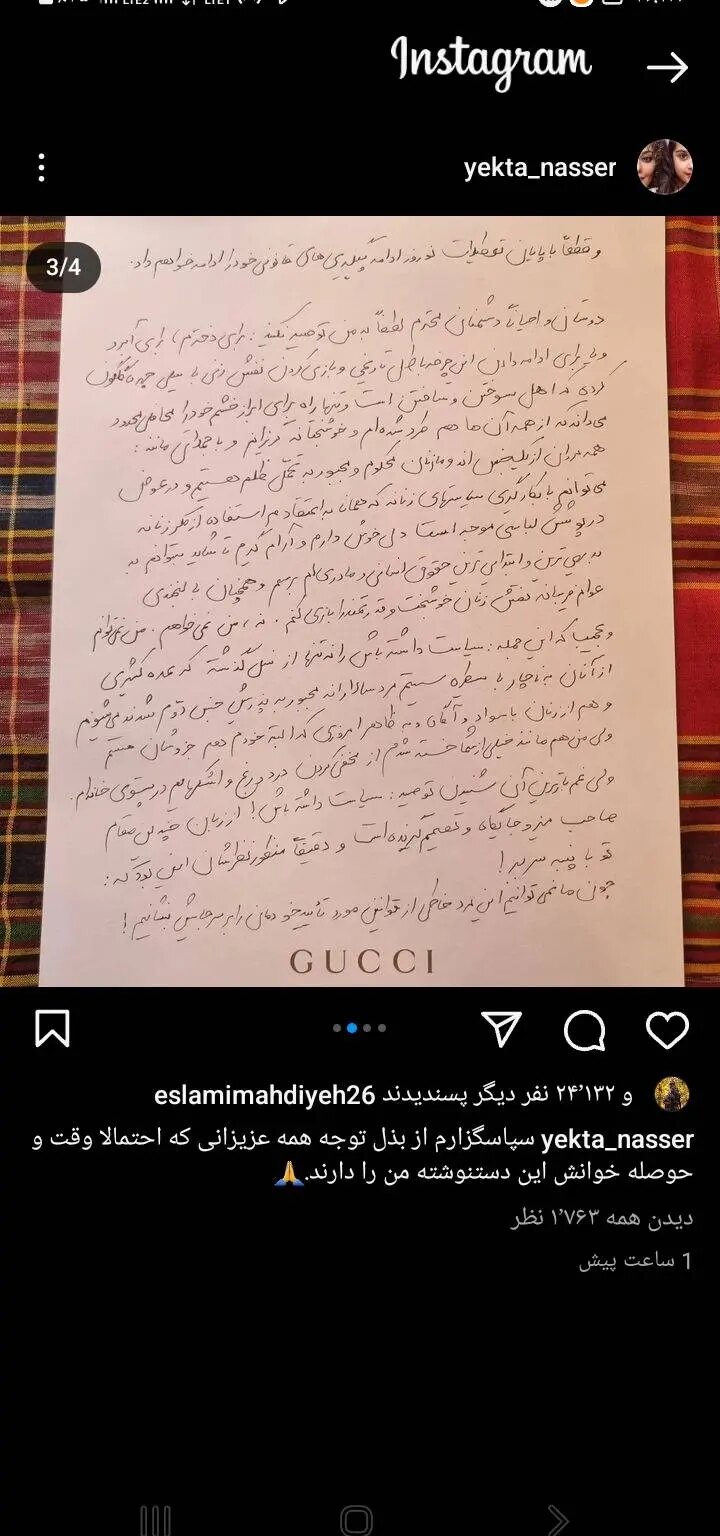 Instagram
yekta_nasser
3/4
و قطعاً با پایان تعطیلات نوروز ادامه پیگیری‌های قانونی خود را ادامه خواهم داد.
دوستان و احیاناً دشمنان محترم لطفاً به من توصیه نکنید: برای دخترم یا برای آبرو
و یا برای ادامه دادن این چرخه باطل تاریخی و بازی کردن نقش زنی با سیلی چهره گلگون
کردن که اهل سوختن و ساختن است و تنها راه برای ابراز خشم خود را محافل محدود
می‌داند که از همه آن ها هم طرد شده‌ام و خوشبختانه گریزانم و با جملاتی مانند:
همه مردان از یک جنس اند و ما زنان محکوم و مجبور به تحمل ظلم هستیم و در عوض
می‌توانیم با بکارگیری سیاستهای زنانه که همانا به اعتقادم استفاده از مکر زنانه
در پوشش لباسی موجه است دلی خوش دارم و آرام گیرم تا شاید بتوانم به
بدیهی ترین و ابتدایی ترین حقوق انسانی و مادری‌ام برسم و همچنان با لبخندی
عوام فریبانه نقش زنان خوشبخت و قدرتمند را بازی کنم. نه، من نمی‌خواهم. من نمی‌توانم
و عجیب که این جمله: سیاست داشته باش را نه تنها از نسل گذشته که عده کثیری
از آنان به ناچار با سیطره سیستم مرد سالارانه مجبور به پذیرش جنس دوم شدند می‌شنوم
و هم از زنان با سواد و آگاه و به ظاهر امروزی که البته خودم هم جزوشان هستم
ولی من هم مانند خیلی از شما خسته شدم از مخفی کردن درد و رنج و اشکهایم در پستوی خانه‌ام.
ولی غم بارترین آن شنیدن توصیه: سیاست داشته باش! از زبان چندین مقام
صاحب میز و جایگاه و تصمیم گیرنده است و دقیقاً منظور نظرشان این بود که:
تو با پنبه سر ببر!
چون ما نمی‌توانیم این مرد خاطی از قوانین مورد تأیید خودمان را بر سر جایش بنشانیم!
GUCCI
eslamimahdiyeh26 و ۲۴٬۱۳۲ نفر دیگر پسندیدند
yekta_nasser سپاسگزارم از بذل توجه همه عزیزانی که احتمالا وقت و
حوصله خوانش این دستنوشته من را دارند.🙏
دیدن همه ۱٬۷۶۳ نظر
1 ساعت پیش